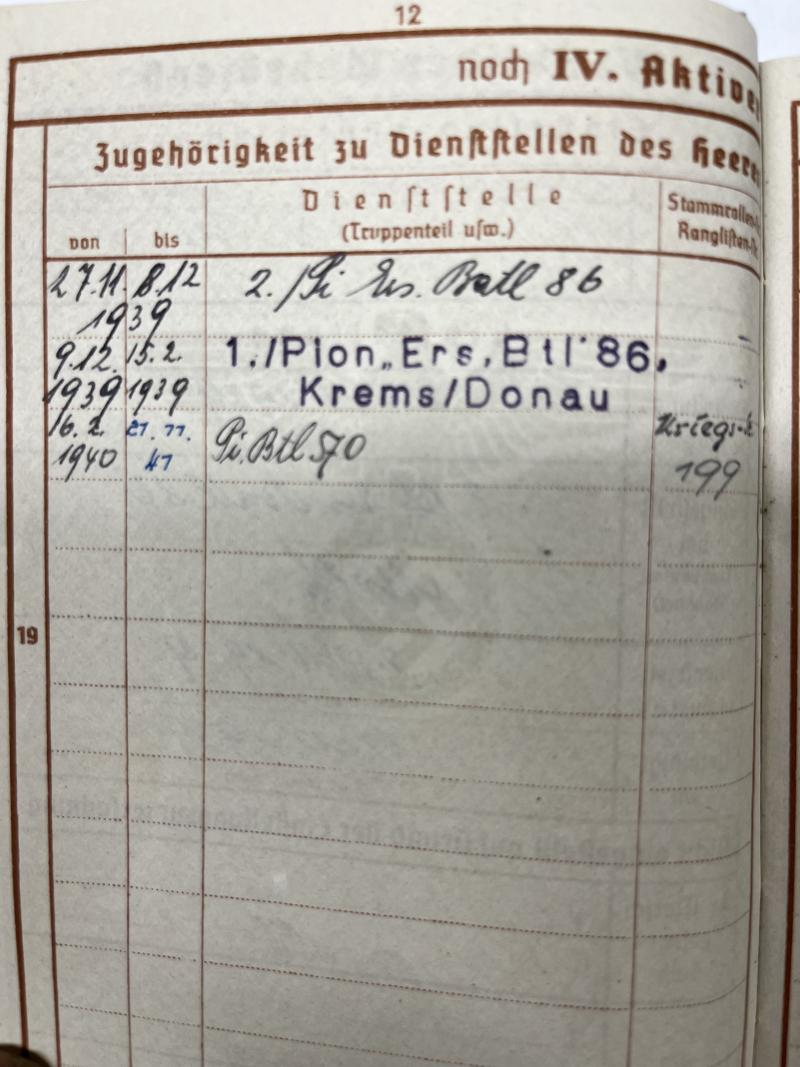 12
noch IV. Aktive
Zugehörigkeit zu Dienststellen des Heere
von bis Dienststelle (Truppenteil usw.) Stammrollen- Ranglisten-
27.11. 8.12 2./Pi Ers. Batl 86
1939
9.12. 15.2. 1./Pion„ Ers, Btl 86,
1939 1939 Krems/Donau
16.2. 21.11. Pi. Btl 70 Kriegs-
1940 41 199
19